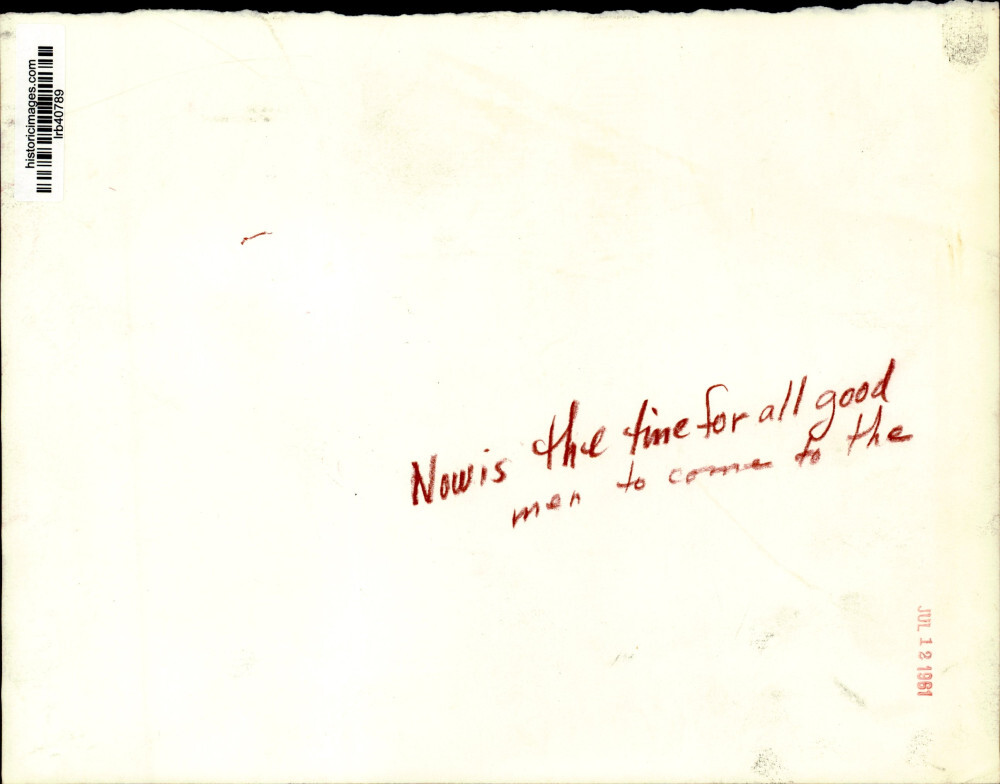 historicimages.com
lrb40789
Now is the time for all good
men to come to the
JUL 12 1981